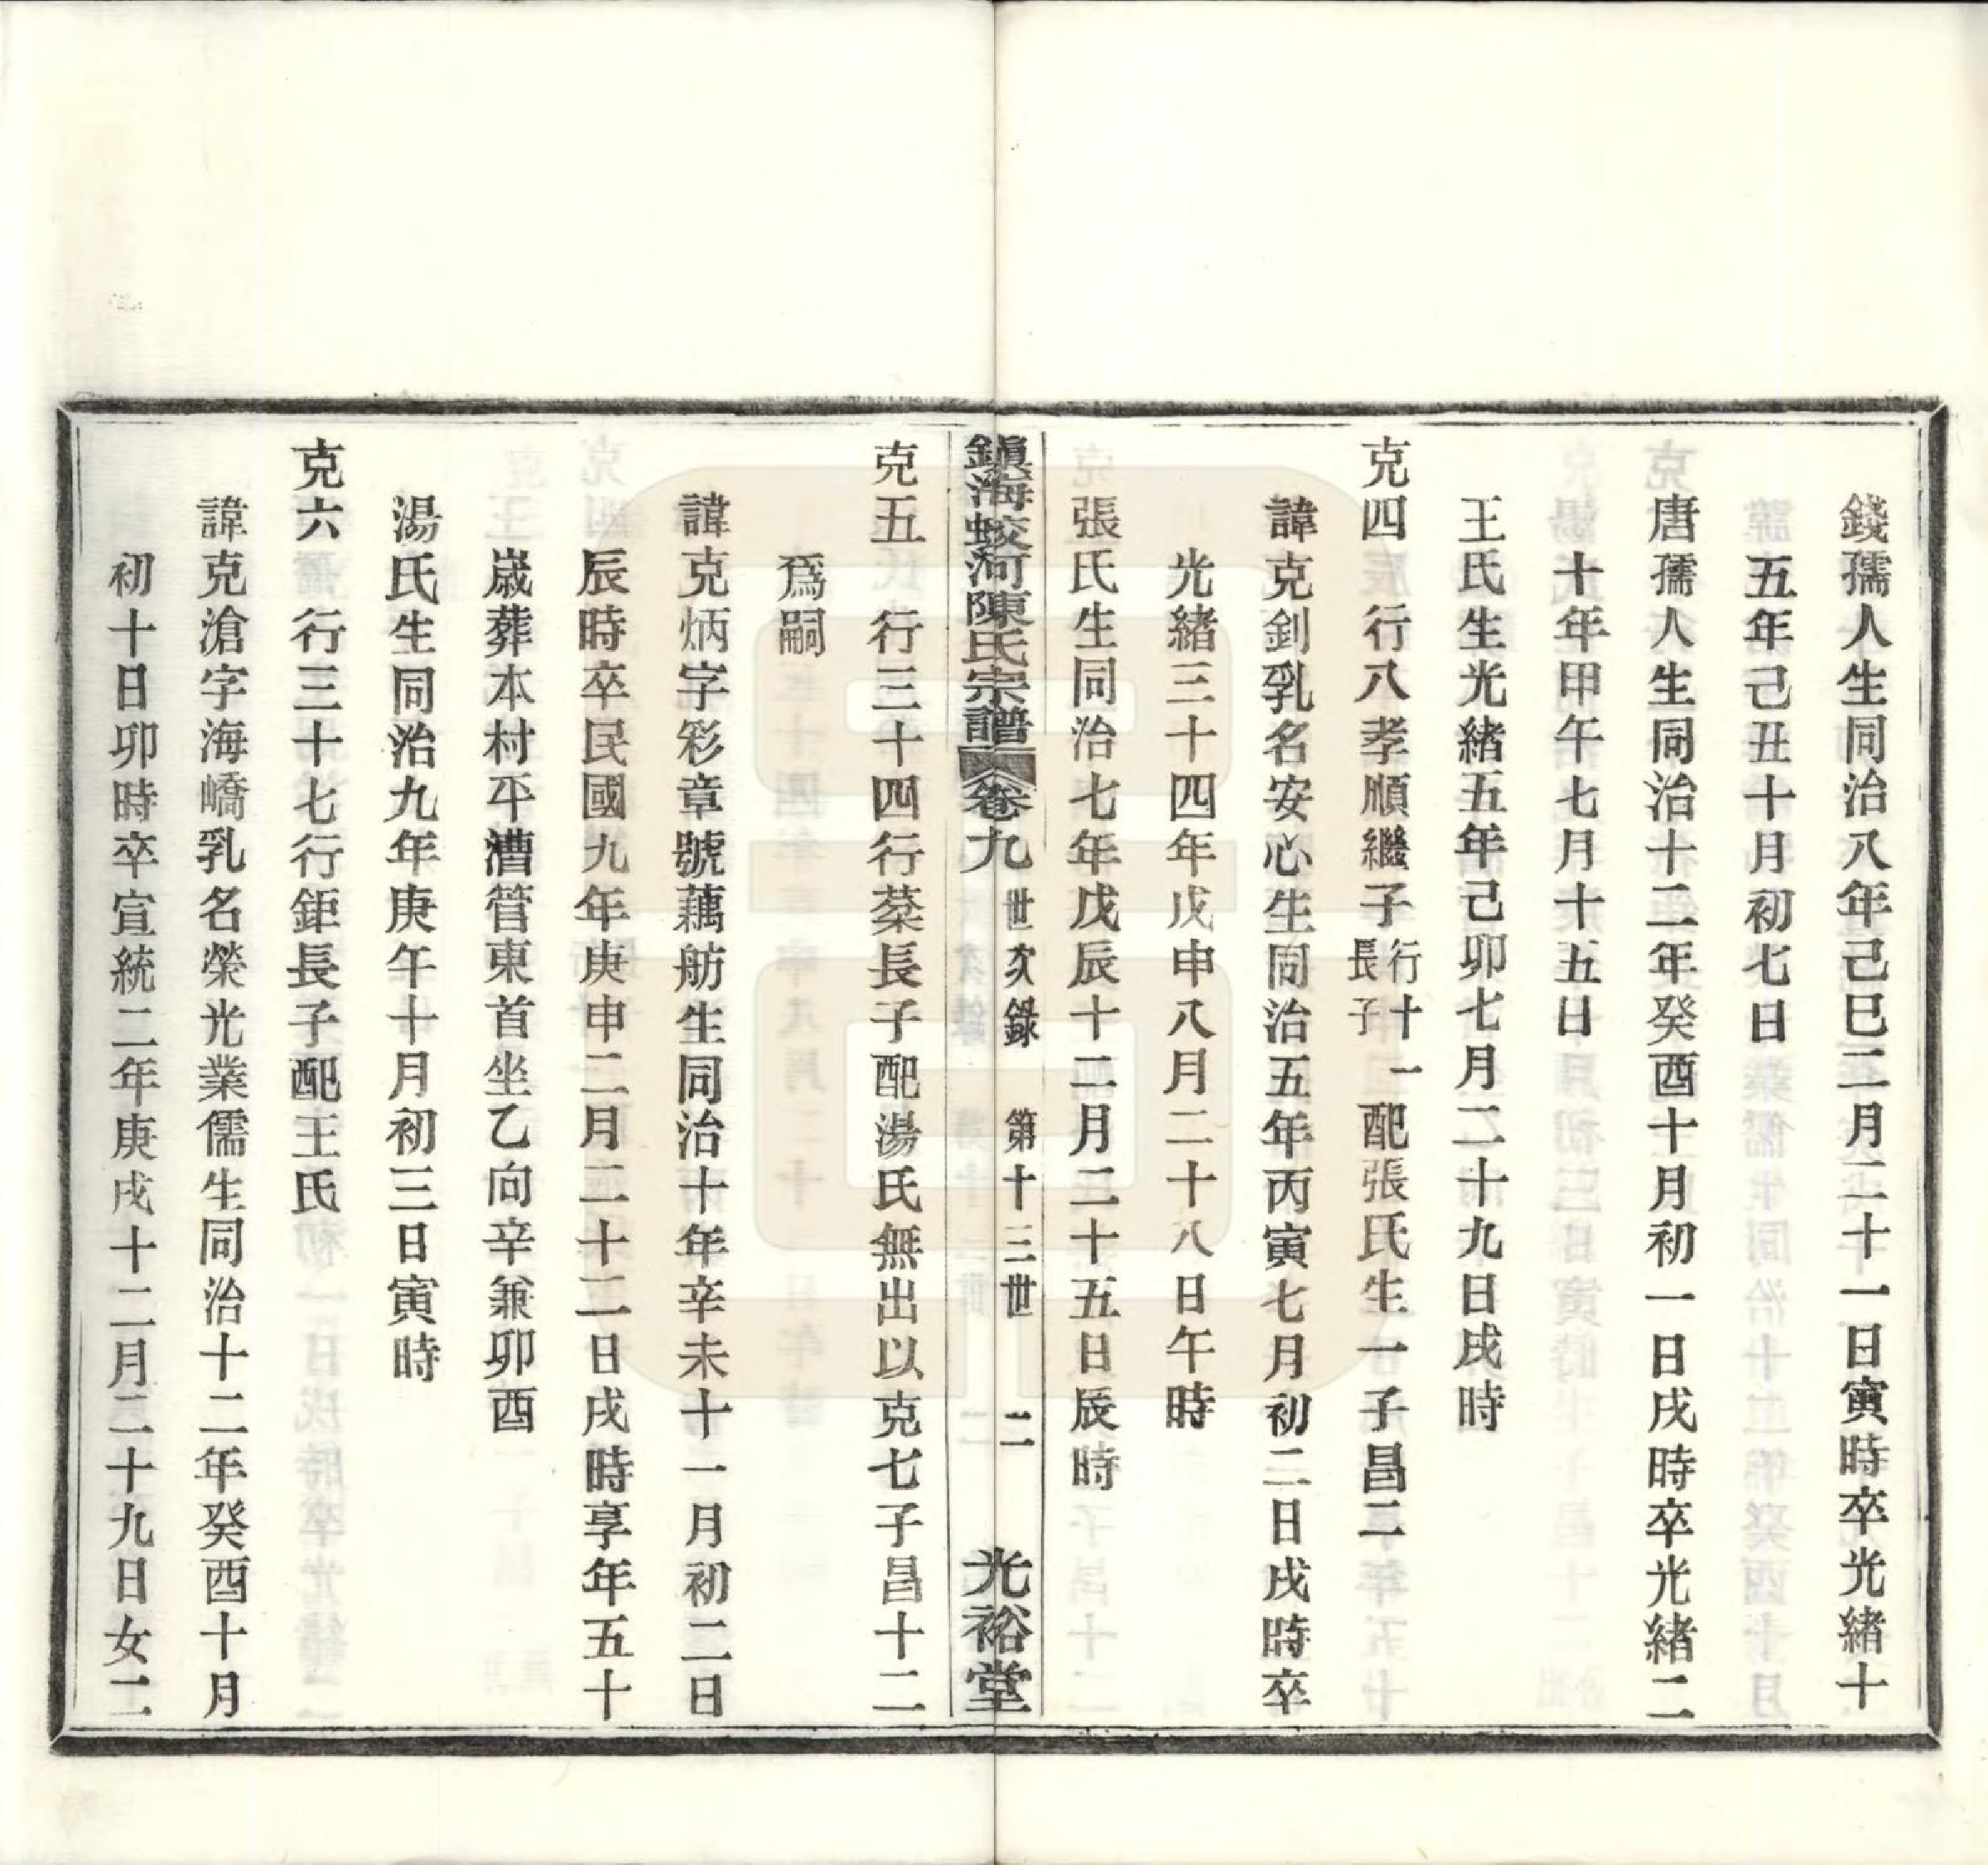 錢孺人生同治八年己巳二月二十一日寅時卒光緒十
五年己丑十月初七日
唐孺人生同治十二年癸酉十月初一日戌時卒光緒二
十年甲午七月十五日
王氏生光緒五年己卯七月二十九日戌時
克四 行八孝順繼子行十一長子配張氏生一子昌二
諱克釗乳名安心生同治五年丙寅七月初二日戌時卒
光緒三十四年戊申八月二十八日午時
張氏生同治七年戊辰十二月二十五日辰時
鎭海蛟河陳氏宗譜 卷九 世次錄 第十三世 二 光裕堂
克五 行三十四行棻長子配湯氏無出以克七子昌十二
爲嗣
諱克炳字彩章號藕舫生同治十年辛未十一月初二日
辰時卒民國九年庚申二月二十二日戌時享年五十
歲葬本村平漕管東首坐乙向辛兼卯酉
湯氏生同治九年庚午十月初三日寅時
克六 行三十七行鉅長子配王氏
諱克滄字海嶠乳名榮光業儒生同治十二年癸酉十月
初十日卯時卒宣統二年庚戌十二月二十九日女二